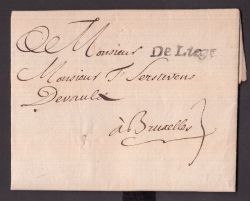 Monsieur De Liege
Monsieur F Serstevens
à Bruxelles